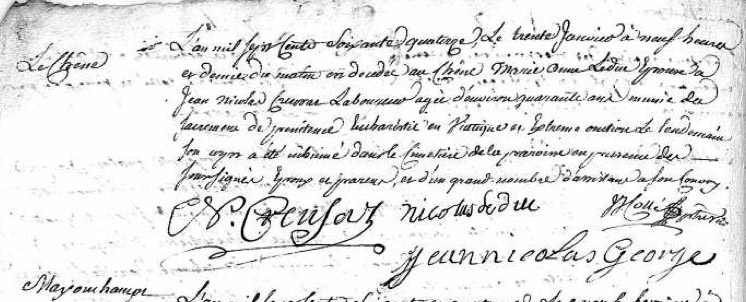 Le Chêne
L'an mil sept cents soixante quatorze, Le trente Janvier à neuf heures
et demie du matin est decedée au chêne Marie Anne Leduc Epouse à
Jean Nicolas Laboureur agée d'environ quarante ans munie des
sacremens de penitence Eucharistie en Viatique et Extreme onction Le lendemain
son corps a été inhumé dans le Cimetière de la paroisse en presence des
soussignés Epoux et parens, et d'un grand nombre d'assistans a son Convoy.
nicolas leduc
jean nicolas George
L'an mil sept